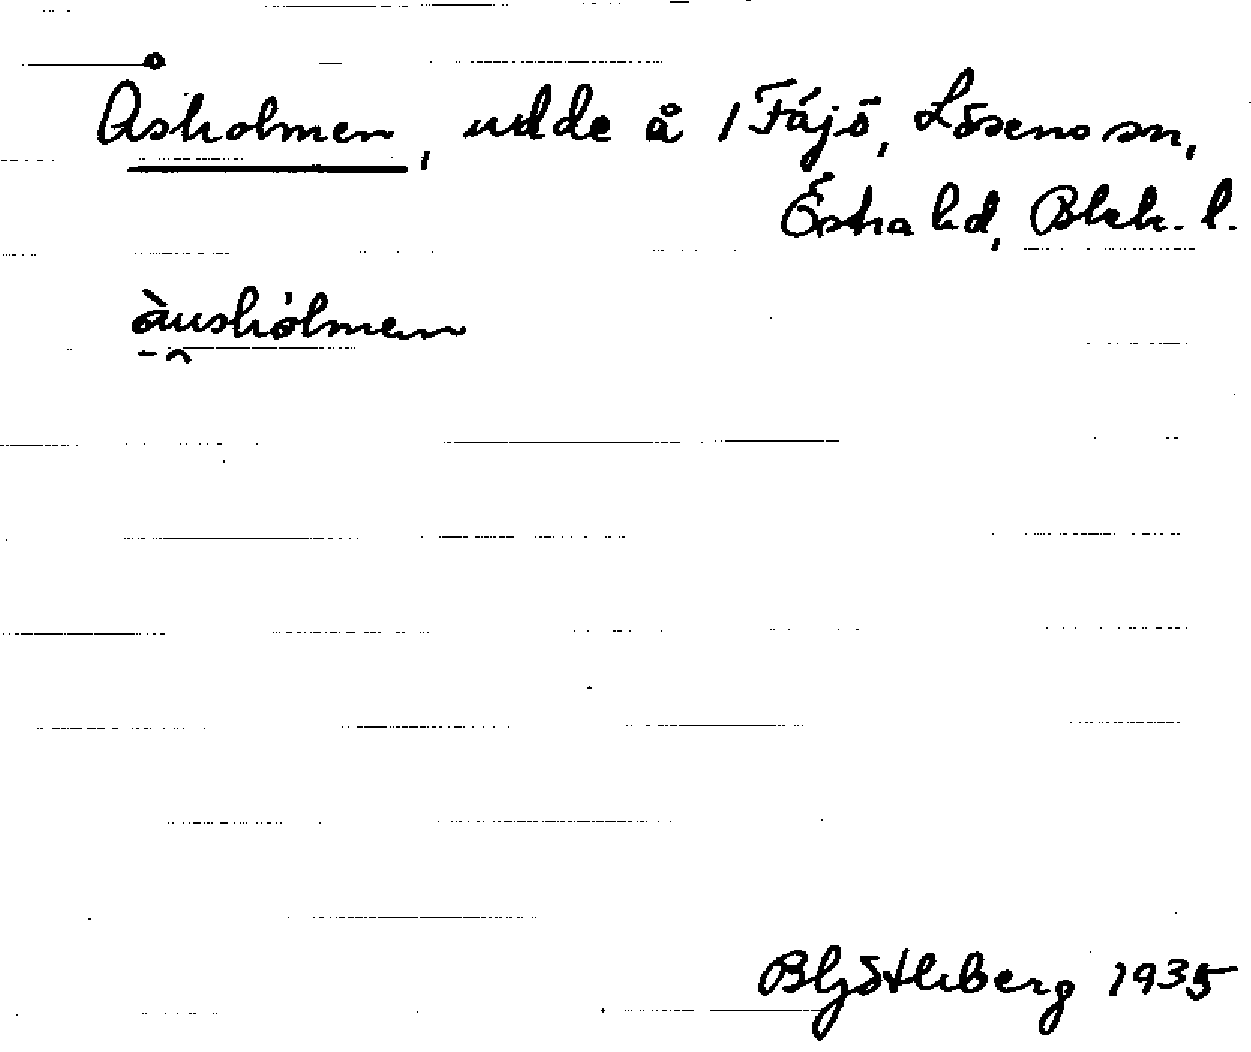 Åsholmen, udde å 1 Fäjö, Lösens sn,
Östra hd, Blek. l.
àushólmen
BGötlrberg 1935